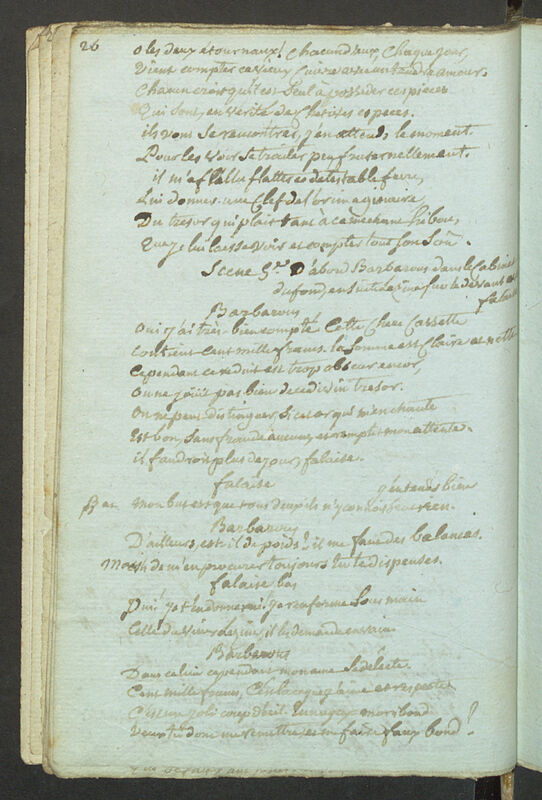 26
O les deux etourneaux! Chacun d'eux, Chaque jour,
Vient compter ce vieux Cuivre avec un tendre amour.
Chacun croit qu'il est Seul à posseder ces pieces
Qui sont, en verité de Chetives especes.
ils vont Se rencontrer, j'en attends le moment.
Pour les voir Se traiter peu fraternellement.
il m'a fallu flatter détestable
Lui donner une Clef de l'or imaginaire,
Du tresor qui plait tant à ce méchant hibou,
Que je lui laisse voir et compter tout Son Soû.
Scene 5.e D'abord Barbarous dans le Cabinet
du fond, ensuite sur le devant et
falaise
Barbarous
Oui j'ai très-bien compté Cette Chere Cassette
Contient Cent mille francs. la Somme est Claire et nette
Cependant ce reduit est trop obscur encor
On ne jouit pas bien de ce divin tresor.
On ne peut distinguer, Si cet or qui m'enchante
Est bon, Sans fraude aucune, et remplit mon attente.
il faudroit plus de jour, falaise.
falaise
j'entends bien
Bar Mon but est que tous deux ils n'y connoissent rien.
Barbarous
D'ailleurs, est-il de poids? il me faut des balances.
Mais de m'en procurer toujours tu te dispenses.
falaise bas
Oui! je t'en donnerai! je renferme Sous main
Celle du vieux il les demande en vain
Barbarous
Dans ce lieu cependant mon ame Se délecte.
Cent mille francs, C'est là ce que j'aime et respecte
C'est un joli coup d'œil. moribond
Veux-tu donc me remettre et me faire faux bond?